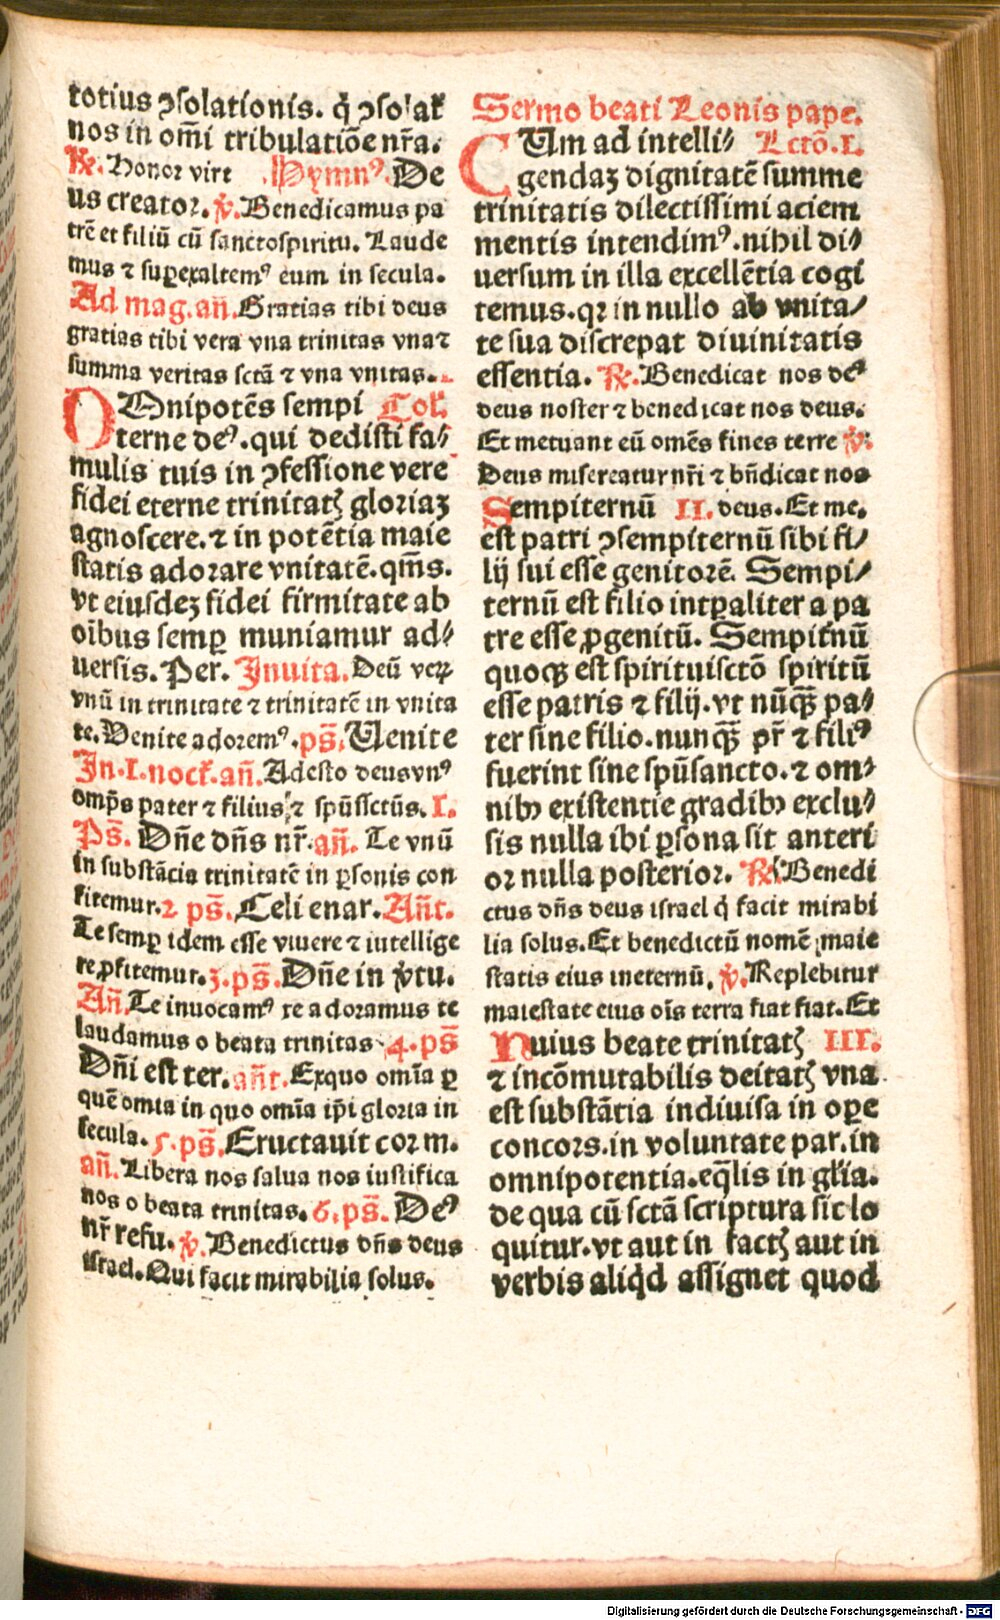 totius ꝯsolationis. q̇ ꝯsolat̄
nos in om̄i tribulatiōe nr̄a.
℟. Honor virt Hymnꝰ. De
us creator. ℣. Benedicamus pa
trē et filiū cū sanctospiritu. Laude
mus ⁊ suꝑexaltemꝰ eum in secula.
Ad mag. an̄. Gratias tibi deus
gratias tibi vera vna trinitas vna ⁊
summa veritas sctā ⁊ vna vnitas.
OMnipotēs sempi Coll̄.
terne deꝰ. qui dedisti fa⸗
mulis tuis in ꝯfessione vere
fidei eterne trinitatꝭ gloriaꝫ
agnoscere. ⁊ in potētia maie
statis adorare vnitatē. qm̄s.
vt eiusdeꝫ fidei firmitate ab
oībus semꝑ muniamur ad⸗
uersis. Per. Inuita. Deū verꝝ
vnū in trinitate ⁊ trinitatē in vnita
te. Venite adoremꝰ. ps̄. Uenite
In. I. noct̄. an̄. Adesto deus vnꝰ
omp̄s pater ⁊ filius ⁊ spūssctūs. I.
Ps̄. Dn̄e dn̄s nr̄. an̄. Te vnū
in substācia trinitatē in ꝑsonis con
fitemur. 2 ps̄. Celi enar. An̄t.
Te semꝑ idem esse viuere ⁊ intellige
re ꝓfitemur. 3. ps̄. Dn̄e in v̇tu.
An̄. Te inuocamꝰ te adoramus te
laudamus o beata trinitas 4. ps̄
Dn̄i est ter. an̄t. Ex quo omīa ꝑ
quē omia in quo omīa ip̄i gloria in
secula. 5. ps̄. Eructauit cor m.
an̄. Libera nos salua nos iustifica
nos o beata trinitas. 6. ps̄. Deꝰ
nr̄ refu. ℣. Benedictus dn̄s deus
israel. Qui facit mirabilia solus.
Sermo beati Leonis pape.
CUm ad intelli⸗ Lctō. I.
gendaꝫ dignitatē summe
trinitatis dilectissimi aciem
mentis intendimꝰ. nihil di⸗
uersum in illa excellētia cogi
temus. qꝛ in nullo ab vnita⸗
te sua discrepat diuinitatis
essentia. ℟. Benedicat nos deꝰ
deus noster ⁊ benedicat nos deus.
Et metuant eū omēs fines terre ℣:
Deus misereatur nr̄i ⁊ bn̄dicat nos
Sempiternū II. deus. Et me.
est patri ꝯsempiternū sibi fi⸗
lij sui esse genitorē. Sempi⸗
ternū est filio intꝑaliter a pa
tre esse ꝓgenitū. Sempit̄nū
quoqꝫ est spirituisctō spiritū
esse patris ⁊ filij. vt nūqꝫ̄ pa⸗
ter sine filio. nunqꝫ̄ pr̄ ⁊ filiꝰ
fuerint sine spūsancto. ⁊ om⸗
nibꝰ existentie gradibꝰ exclu⸗
sis nulla ibi ꝑsona sit anteri
or nulla posterior. ℟. Benedi
ctus dn̄s deus israel q̇ facit mirabi
lia solus. Et benedictū nomē maie
statis eius ineternū. ℣. Replebitur
maiestate eius oīs terra fiat fiat. Et
Huius beate trinitatꝭ III.
⁊ incōmutabilis deitatꝭ vna
est substātia indiuisa in oꝑe
concors. in voluntate par. in
omnipotentia. eq̄lis in gl̄ia.
de qua cū sctā scriptura sic lo
quitur. vt aut in factꝭ aut in
verbis aliq̇d assignet quod
Digitalisierung gefördert durch die Deutsche Forschungsgemeinschaft - DFG